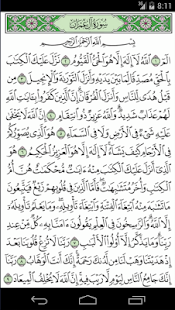 8:11
سُورَةُ آلِ عِمْرَانَ
بِسْمِ ٱللَّهِ ٱلرَّحْمَٰنِ ٱلرَّحِيمِ
الٓمٓ ١ ٱللَّهُ لَآ إِلَٰهَ إِلَّا هُوَ ٱلْحَىُّ ٱلْقَيُّومُ ٢ نَزَّلَ عَلَيْكَ ٱلْكِتَٰبَ
بِٱلْحَقِّ مُصَدِّقًا لِّمَا بَيْنَ يَدَيْهِ وَأَنزَلَ ٱلتَّوْرَىٰةَ وَٱلْإِنجِيلَ ٣ مِن
قَبْلُ هُدًى لِّلنَّاسِ وَأَنزَلَ ٱلْفُرْقَانَ إِنَّ ٱلَّذِينَ كَفَرُوا۟ بِـَٔايَٰتِ ٱللَّهِ
لَهُمْ عَذَابٌ شَدِيدٌ وَٱللَّهُ عَزِيزٌ ذُو ٱنتِقَامٍ ٤ إِنَّ ٱللَّهَ لَا يَخْفَىٰ عَلَيْهِ
شَىْءٌ فِى ٱلْأَرْضِ وَلَا فِى ٱلسَّمَآءِ ٥ هُوَ ٱلَّذِى يُصَوِّرُكُمْ
فِى ٱلْأَرْحَامِ كَيْفَ يَشَآءُ لَآ إِلَٰهَ إِلَّا هُوَ ٱلْعَزِيزُ ٱلْحَكِيمُ ٦
هُوَ ٱلَّذِىٓ أَنزَلَ عَلَيْكَ ٱلْكِتَٰبَ مِنْهُ ءَايَٰتٌ مُّحْكَمَٰتٌ هُنَّ أُمُّ
ٱلْكِتَٰبِ وَأُخَرُ مُتَشَٰبِهَٰتٌ فَأَمَّا ٱلَّذِينَ فِى قُلُوبِهِمْ زَيْغٌ فَيَتَّبِعُونَ
مَا تَشَٰبَهَ مِنْهُ ٱبْتِغَآءَ ٱلْفِتْنَةِ وَٱبْتِغَآءَ تَأْوِيلِهِۦ وَمَا يَعْلَمُ تَأْوِيلَهُۥٓ
إِلَّا ٱللَّهُ وَٱلرَّٰسِخُونَ فِى ٱلْعِلْمِ يَقُولُونَ ءَامَنَّا بِهِۦ كُلٌّ مِّنْ عِندِ
رَبِّنَا وَمَا يَذَّكَّرُ إِلَّآ أُو۟لُوا۟ ٱلْأَلْبَٰبِ ٧ رَبَّنَا لَا تُزِغْ قُلُوبَنَا بَعْدَ
إِذْ هَدَيْتَنَا وَهَبْ لَنَا مِن لَّدُنكَ رَحْمَةً إِنَّكَ أَنتَ ٱلْوَهَّابُ ٨
رَبَّنَآ إِنَّكَ جَامِعُ ٱلنَّاسِ لِيَوْمٍ لَّا رَيْبَ فِيهِ إِنَّ ٱللَّهَ لَا يُخْلِفُ ٱلْمِيعَادَ ٩